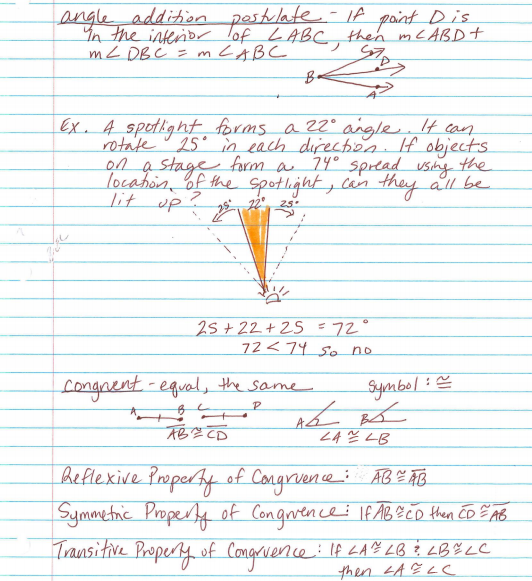 angle addition postulate - If point D is
in the interior of ∠ABC, then m∠ABD +
m∠DBC = m∠ABC
C
D
B
A
Ex. A spotlight forms a 22° angle. It can
rotate 25° in each direction. If objects
on a stage form a 74° spread using the
location of the spotlight, can they all be
lit up?
25° 22° 25°
25 + 22 + 25 = 72°
72 < 74 so no
congruent - equal, the same Symbol: ≅
A B C D A B
AB ≅ CD ∠A ≅ ∠B
Reflexive Property of Congruence: AB ≅ AB
Symmetric Property of Congruence: If AB ≅ CD then CD ≅ AB
Transitive Property of Congruence: If ∠A ≅ ∠B & ∠B ≅ ∠C
then ∠A ≅ ∠C